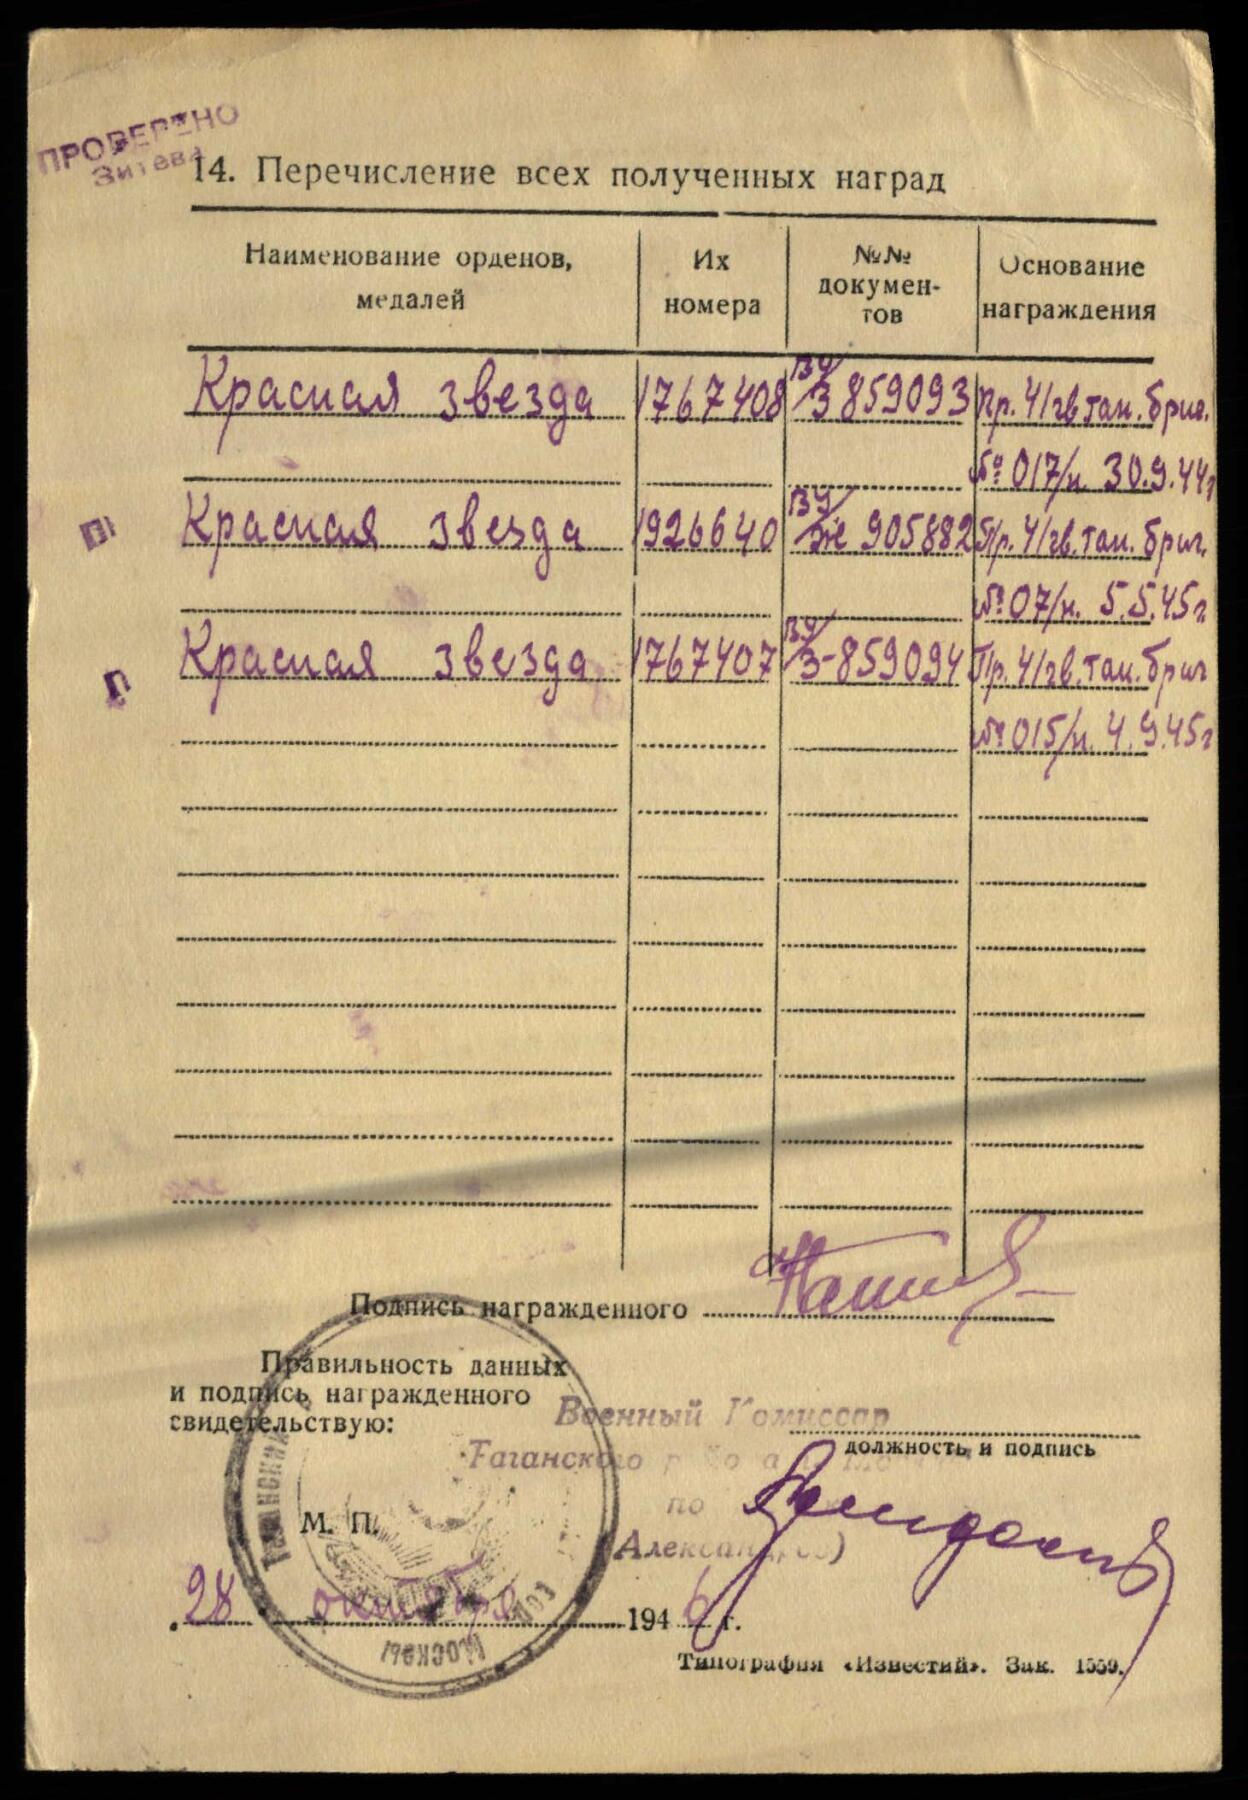 ПРОВЕРЕНО
Зитева
14. Перечисление всех полученных наград
Наименование орденов, медалей
Их номера
№№ докумен-тов
Основание награждения
Красная звезда 1767408 ВУ/З 859093 Пр. 41гв тан. бриг.
№ 017/н. 30.9.44г
П
Красная звезда 1926640 ВУ/Же 905882 Пр. 41гв. тан. бриг.
№ 07/н. 5.5.45г
П
Красная звезда 1767407 ВУ/З-859094 Пр. 41гв. тан. бриг
№ 015/н. 4.9.45г
Подпись награжденного
Правильность данных
и подпись награжденного
свидетельствую:
Военный Комиссар
должность и подпись
Таганского
по
М. П.
(Александров)
МОСКВЫ
28 октября 1946 г.
Типография «Известий». Зак. 1559.